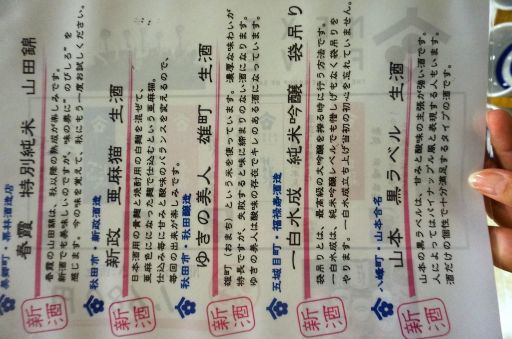 美郷町・栗林酒造店
春霞 特別純米 山田錦
春霞の山田錦は、秋以降の熟成が楽しみです。
新酒でも美味しいのですが、味の奥に"のびしろ"を
感じます。今の味を覚えて、秋にもう一度お試しください。
新酒
秋田市・新政酒造
新政 亜麻猫 生酒
日本酒用の黄麹と焼酎用の白麹を混ぜて、
亜麻色になった麹で仕込むという亜麻猫。
仕込み毎に甘みと酸味のバランスを変えるので、
毎回の出来が楽しみです。
新酒
秋田市・秋田醸造
ゆきの美人 雄町 生酒
雄町（おまち）という米を使っています。濃厚な味わいが
特長ですが、失敗すると味に締まりのない酒になります。
ゆきの美人は酸味の存在でキレのある酒になっています。
新酒
五城目町・福禄寿酒造
一白水成 純米吟醸 袋吊り
袋吊りとは、最高級の大吟醸を搾る時だけ行う方法です。
一白水成は、純米吟醸レベルでも惜しげもなく袋吊りを
やります。一白水成立ち上げ当初の初心を忘れていません。
新酒
八峰町・山本合名
山本 黒ラベル 生酒
山本の黒ラベルは、甘みと酸味の主張が強い酒です。
人によってはパイナップル風と表現する人もいます。
酒だけの個性で十分満足するタイプの酒です。
新酒